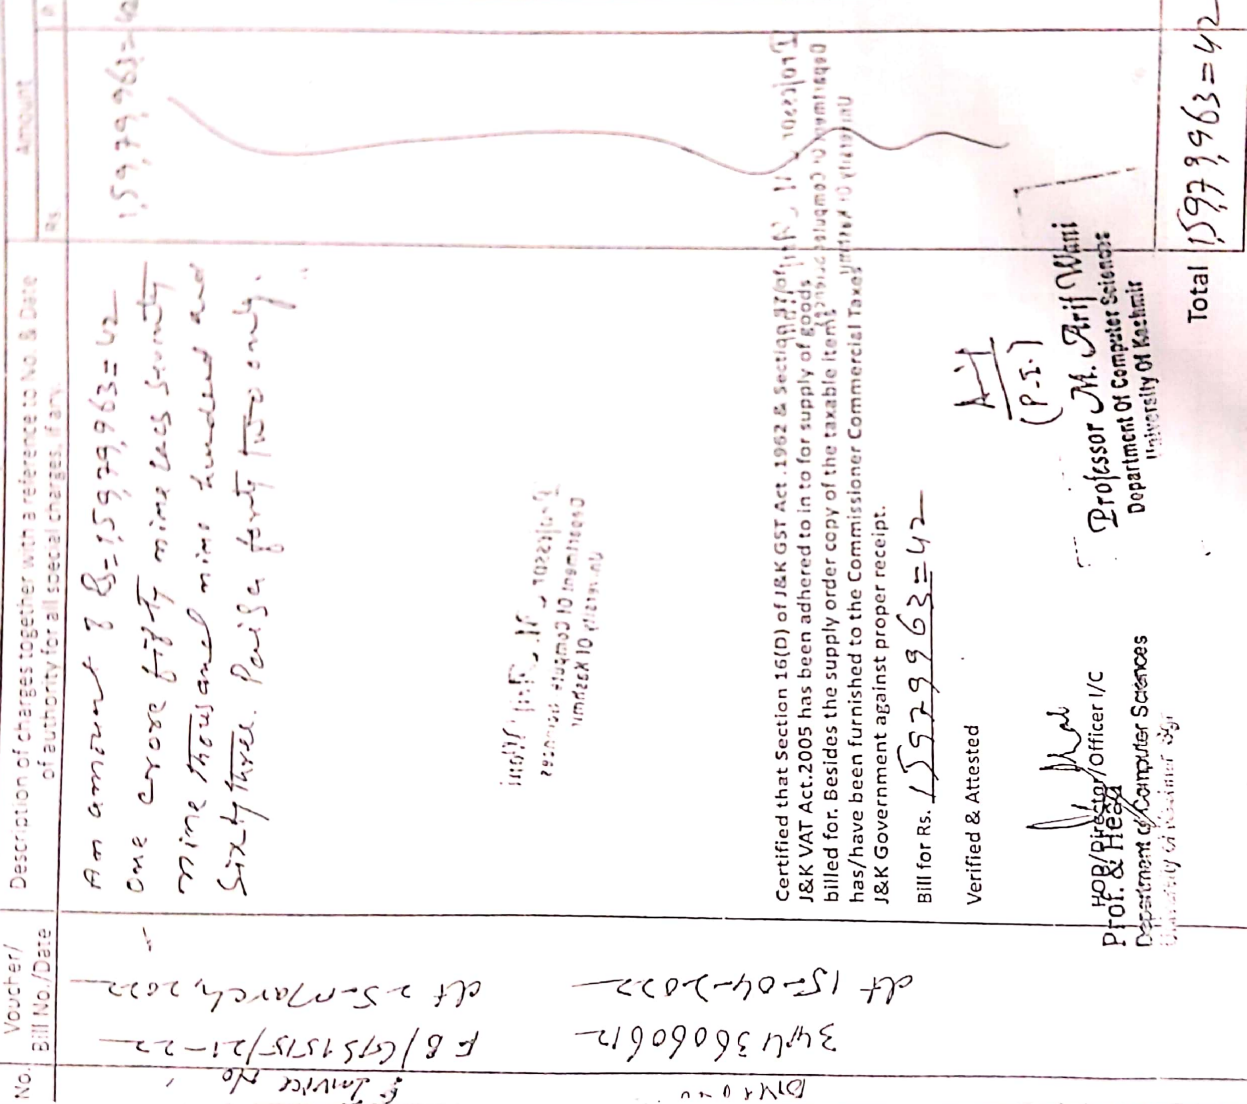 No.
Voucher/
Bill No./Date
Description of charges together with a reference to No. & Date
of authority for all special charges, if any.
Amount
Rs.
P.
E-Invoice No
FB/GS1515/21-22
dt 25-March, 2022
344436060612
dt 15-04-2022
An amount of Rs=1,59,79,963=42
One crore fifty nine lacs seventy
nine thousand nine hundred and
Sixty three. Paisa forty two only.
1,59,79,963=42
Certified that Section 16(D) of J&K GST Act.1962 & Section 37 of
J&K VAT Act.2005 has been adhered to in to for supply of goods
billed for. Besides the supply order copy of the taxable items
has/have been furnished to the Commissioner Commercial Taxes
J&K Government against proper receipt.
Bill for Rs. 15979963=42
Verified & Attested
(P.I.)
Professor M. Arif Wani
Department Of Computer Sciences
University Of Kashmir
HOD/Director/Officer I/C
Prof. & Head
Department of Computer Sciences
Total 1,59,79,963=42